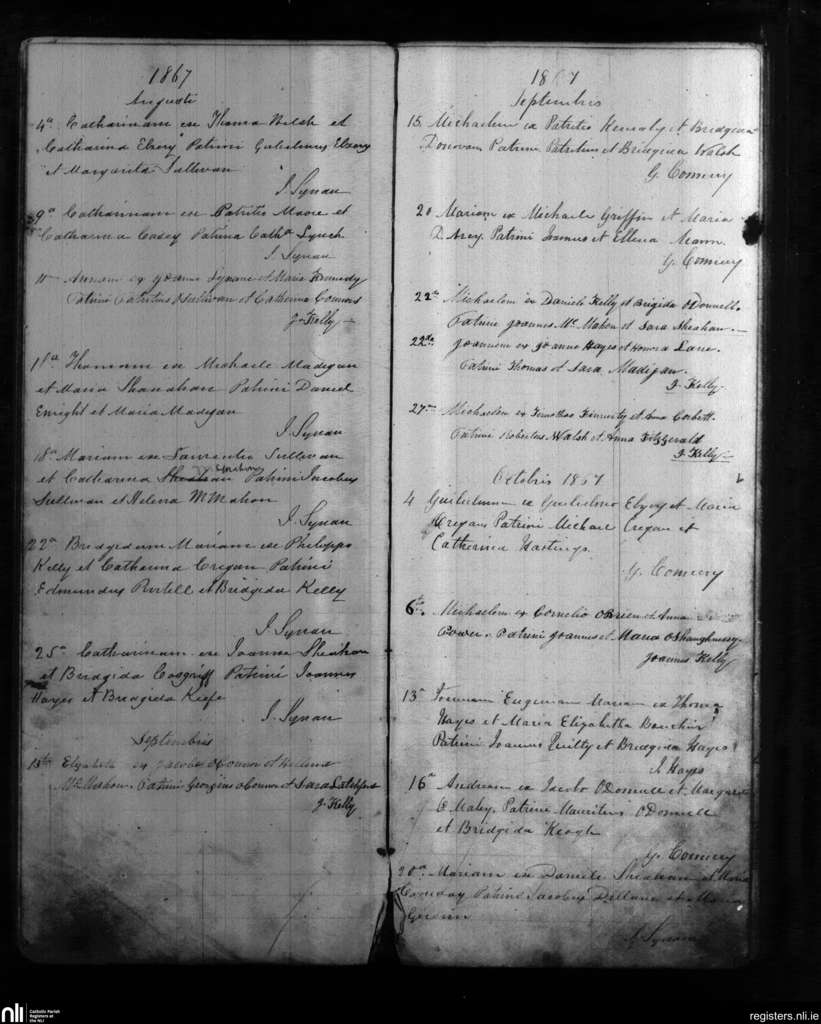 1867
Augusti
4a Catharinam ex Thoma Walsh et
Catharina Ebzery Patrini Gulielmus Ebzery
et Margarita Sullivan
J. Synan
9a Catharinam ex Patritio Moore et
Catharina Casey Patrina Catha Lynch
J. Synan
Annam ex Joanne Synane et Maria Kennedy
Patrini Patritius O'Sullivan et Catherina Connors
J. Kelly
11a Thomam ex Michaele Madigan
et Maria Shanahan Patrini Daniel
Enright et Maria Madigan
J. Synan
18a Mariam ex Laurentio Sullivan
et Catharina Patrini Jacobus
Sullivan et Helena McMahon
J. Synan
22a Bridgidam Mariam ex Philippo
Kelly et Catharina Cregan Patrini
Edmundus Purtell et Bridgida Kelly
J. Synan
25a Catharinam ex Joanne Sheahan
et Bridgida Cosgriff Patrini Joannes
Hayes et Bridgida Keefe
J. Synan
Septembris
15th Elizabeth ex Jacobo O'Connor et Helena
McMahon. Patrini Georgius O'Connor et Sara Latchford
J. Kelly
1867
Septembris
15. Michaelem ex Patritio Kenealy et Bridgida
Donovan Patrini Patritius et Bridgida Walsh
G. Connery
20 Mariam ex Michaele Griffin et Maria
D'Arcy. Patrini Joannes et Ellena Mann.
G. Connery
22da Michaelem ex Daniele Kelly et Brigida O'Donnell.
Patrini Joannes Mc Mahon et Sara Sheahan.
22da Joannem ex Joanne Hayes et Honora Lane.
Patrini Thomas et Sara Madigan.
J. Kelly.
27ma Michaelem ex Timotheo Finnerty et Anna Corbett.
Patrini Robertus Walsh et Anna Fitzgerald
J. Kelly
Octobris 1867
4 Guilielmum ex Guilielmo Ebzery et Maria
Cregan Patrini Michael Cregan et
Catherina Hastings.
G. Connery
6ta Michaelem ex Cornelio O'Brien et Anna
Power. Patrini Joannes et Maria O'Shaughnessy.
Joannes Kelly
13a Joannam Eugeniam Mariam ex Thoma
Hayes et Maria Elizabetha Bouchier
Patrini Joannes Quilty et Bridgida Hayes
J. Hayes
16a Andream ex Jacobo O'Donnell et Margarita
O'Maley. Patrini Mauritius O'Donnell
et Bridgida Keogh
G. Connery
20a Mariam ex Daniele Sheahan et Maria
Conway Patrini Jacobus Dillane et Maria
J. Synan
nli
Catholic Parish
Registers at
the NLI
registers.nli.ie